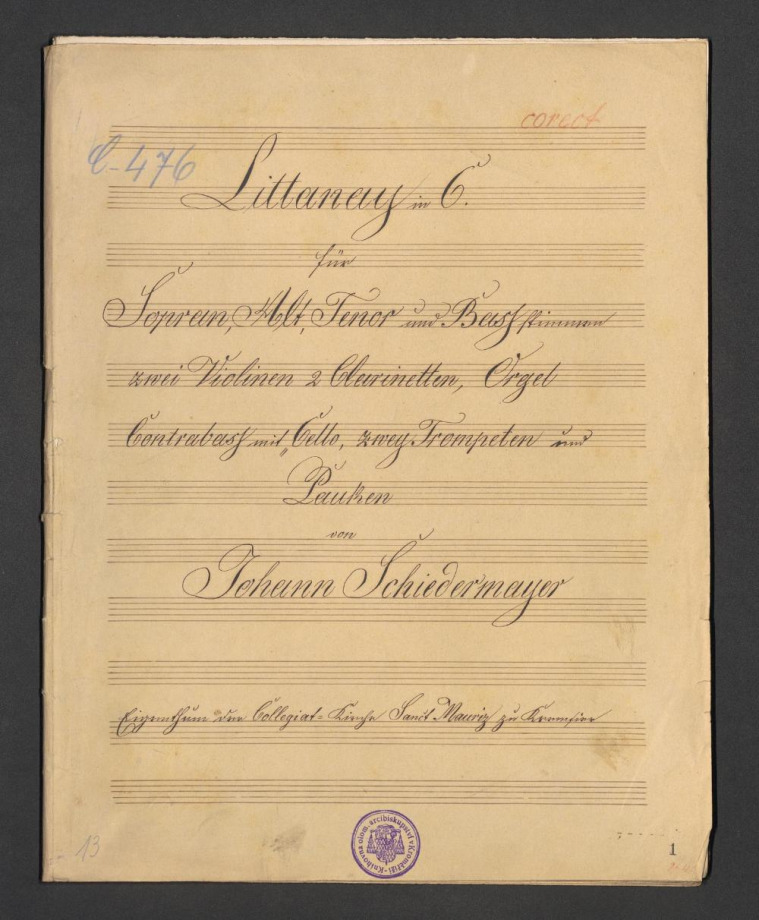 corect
C-476
Littaney in C.
für
Sopran, Alt, Tenor und Bass stimmen
zwei Violinen 2 Clarinetten, Orgel
Contrabass mit „Cello, zwey Trompeten und
Pauken
von
Johann Schiedermayer
Eigenthum der Collegiat=Kirche Sanct Mauriz zu Kremsier
Knihovna olom. arcibiskupství v Kroměříži
13
1